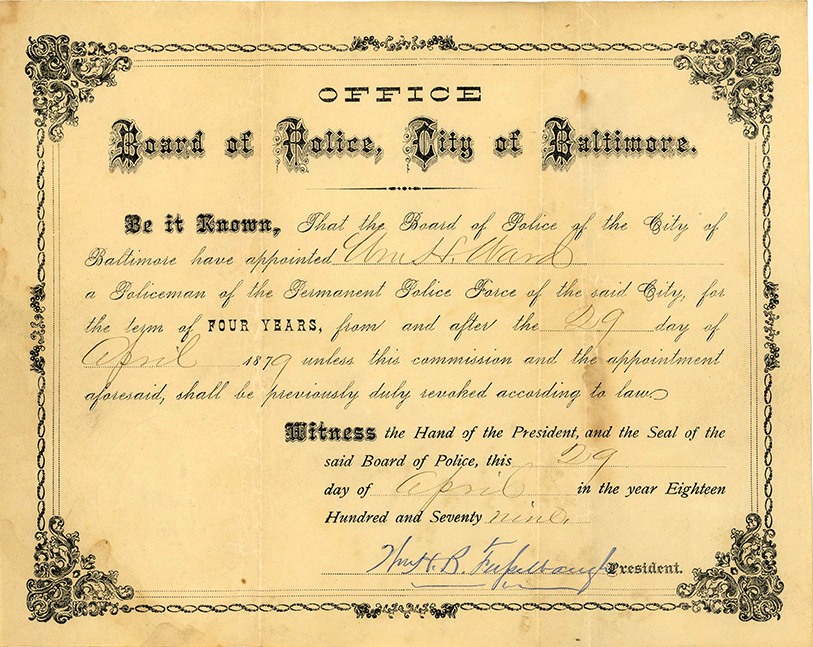 OFFICE
Board of Police, City of Baltimore.
Be it Known, That the Board of Police of the City of
Baltimore have appointed Wm. H. Ward
a Policeman of the Permanent Police Force of the said City, for
the term of FOUR YEARS, from and after the 29 day of
April 1879 unless this commission and the appointment
aforesaid, shall be previously duly revoked according to law.
Witness the Hand of the President, and the Seal of the
said Board of Police, this 29
day of April in the year Eighteen
Hundred and Seventy nine.
Wm. H. B. Fusselbaugh President.